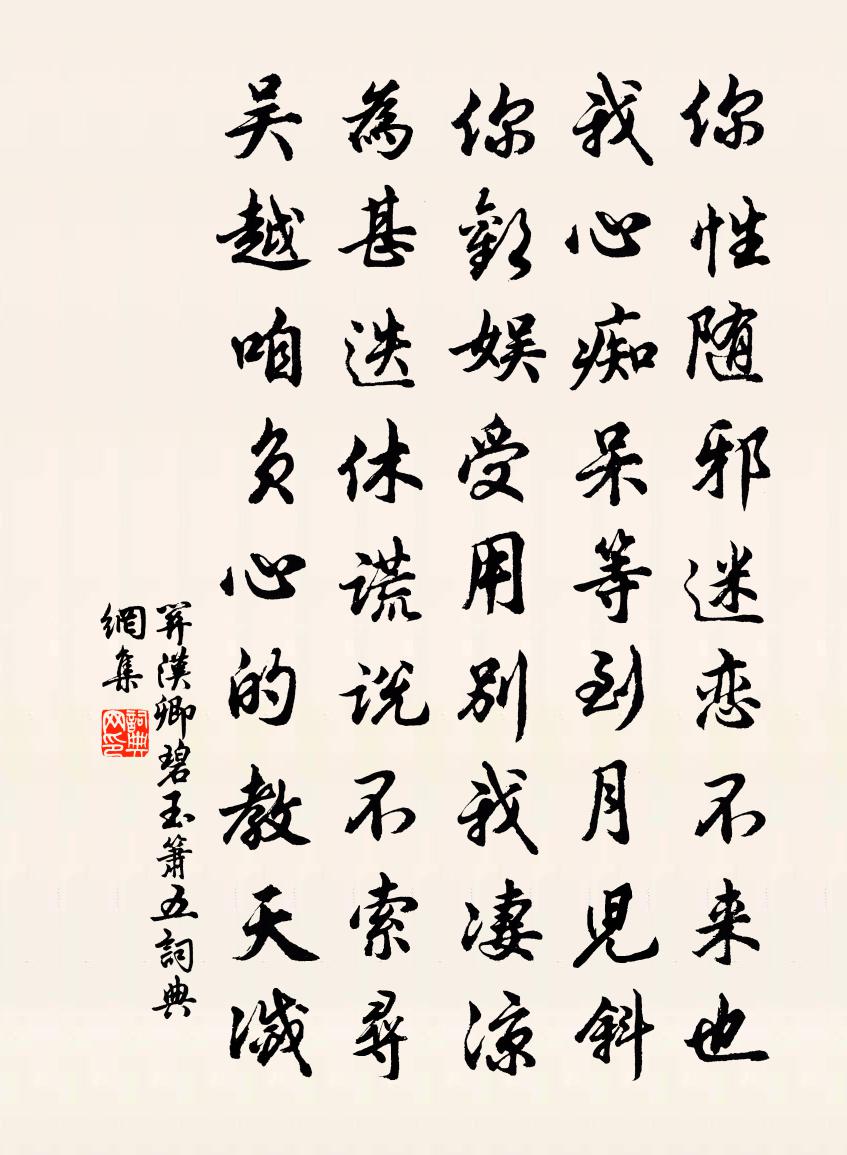 你性随邪迷恋不来也
我心痴呆等到月児斜
你歡娱受用别我凄凉
為甚迭休谎说不索尋
吴越咱负心的教天滅
关漢卿碧玉簫五詞典
網集
詞典网印